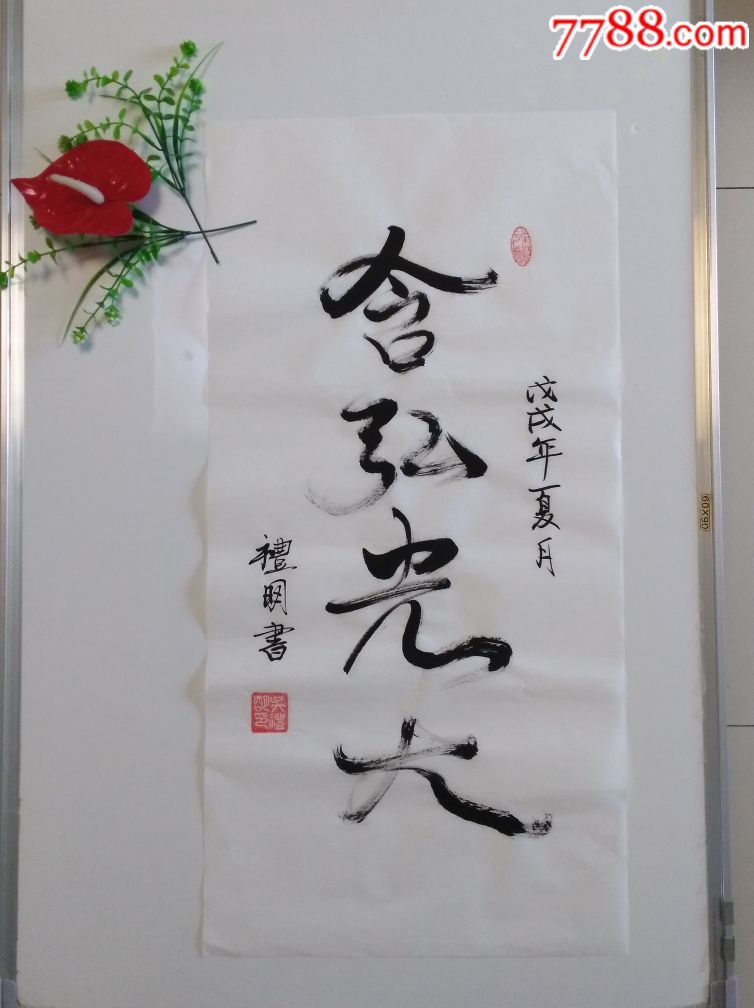 7788.com
戊戌年夏月
含弘光大
禮明書
吴禮明印
60X90